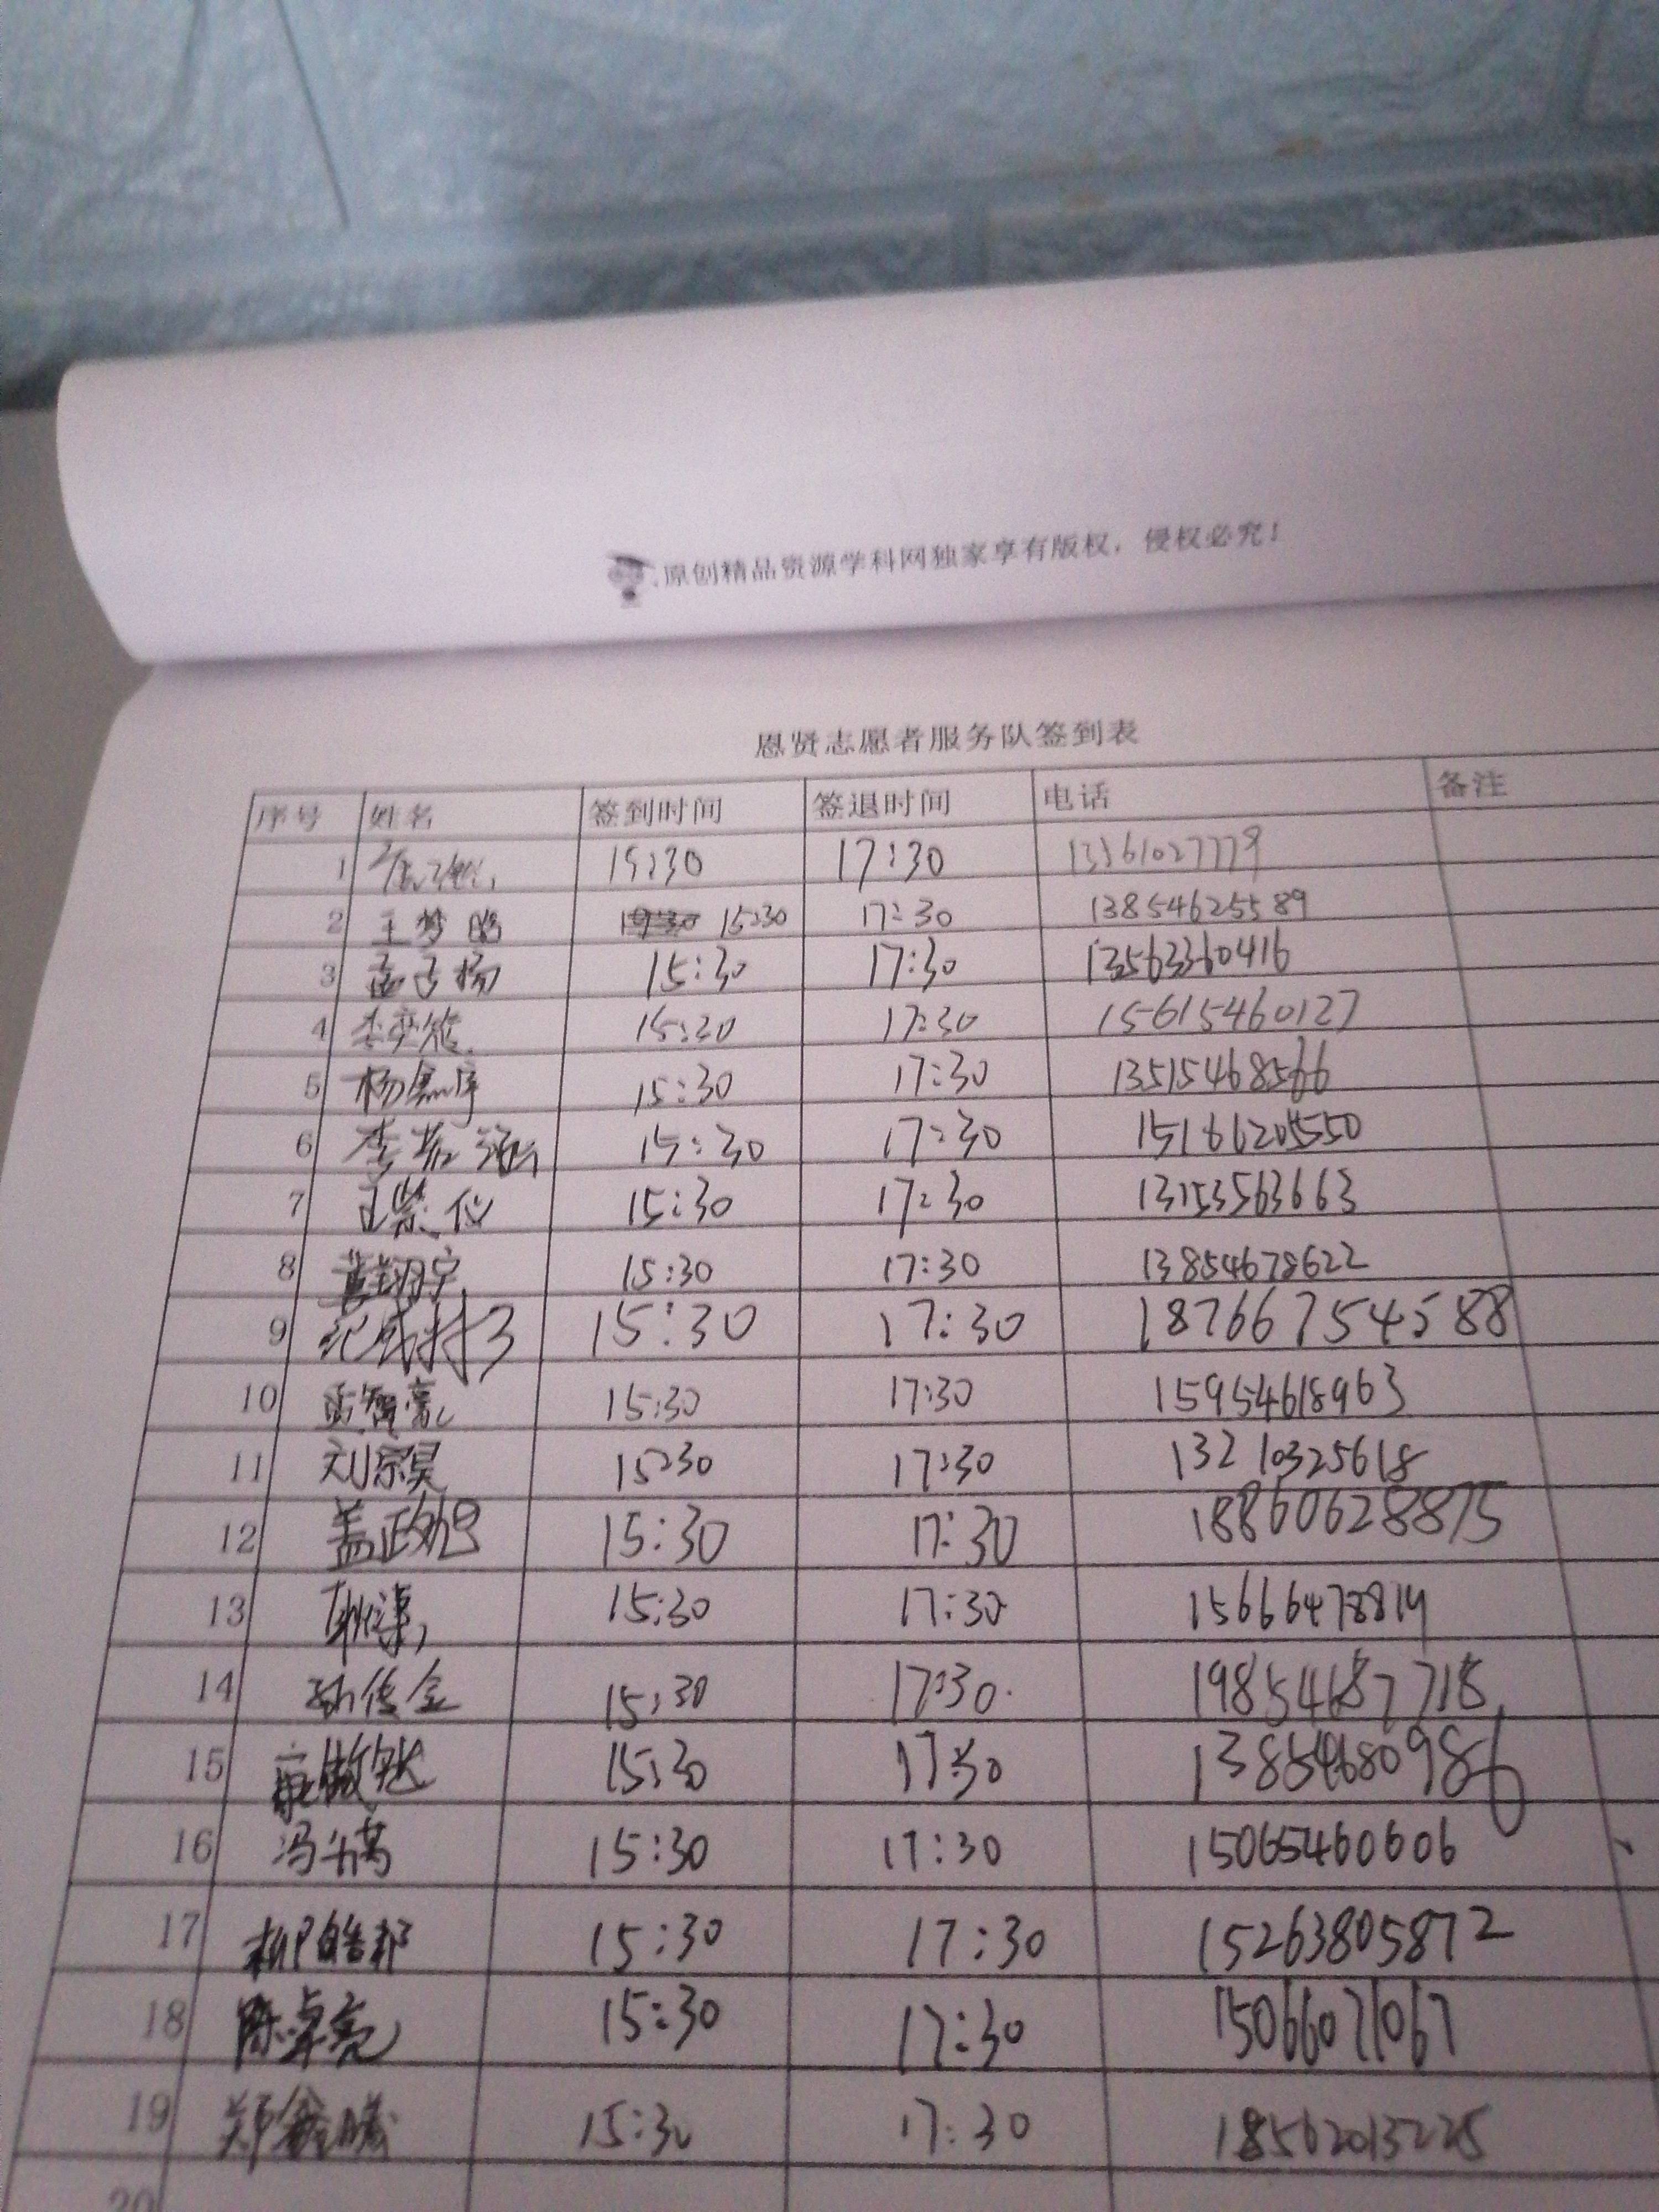 原创精品资源学科网独家享有版权，侵权必究！
恩贤志愿者服务队签到表
序号 姓名 签到时间 签退时间 电话 备注
1 15:30 17:30 13361027779
2 王梦晗 15:30 17:30 13854625589
3 孟子杨 15:30 17:30 13563360416
4 李奕 15:30 17:30 15615460127
5 杨 宇 15:30 17:30 13515468566
6 李若涵 15:30 17:30 15166205550
7 王紫仪 15:30 17:30 13153563663
8 黄翔宁 15:30 17:30 13854678622
9 纪成 15:30 17:30 18766754588
10 孟智豪 15:30 17:30 15954618963
11 刘宗昊 15:30 17:30 13210325618
12 盖政旭 15:30 17:30 18860628875
13 耿 15:30 17:30 15666478814
14 传金 15:30 17:30
15 15:30 17:30 13854680986
16 冯 15:30 17:30 15065460606
17 柳皓 15:30 17:30 15263805872
18 陈卓亮 15:30 17:30 15066071067
19 郑鑫 15:30 17:30 18562013225
20